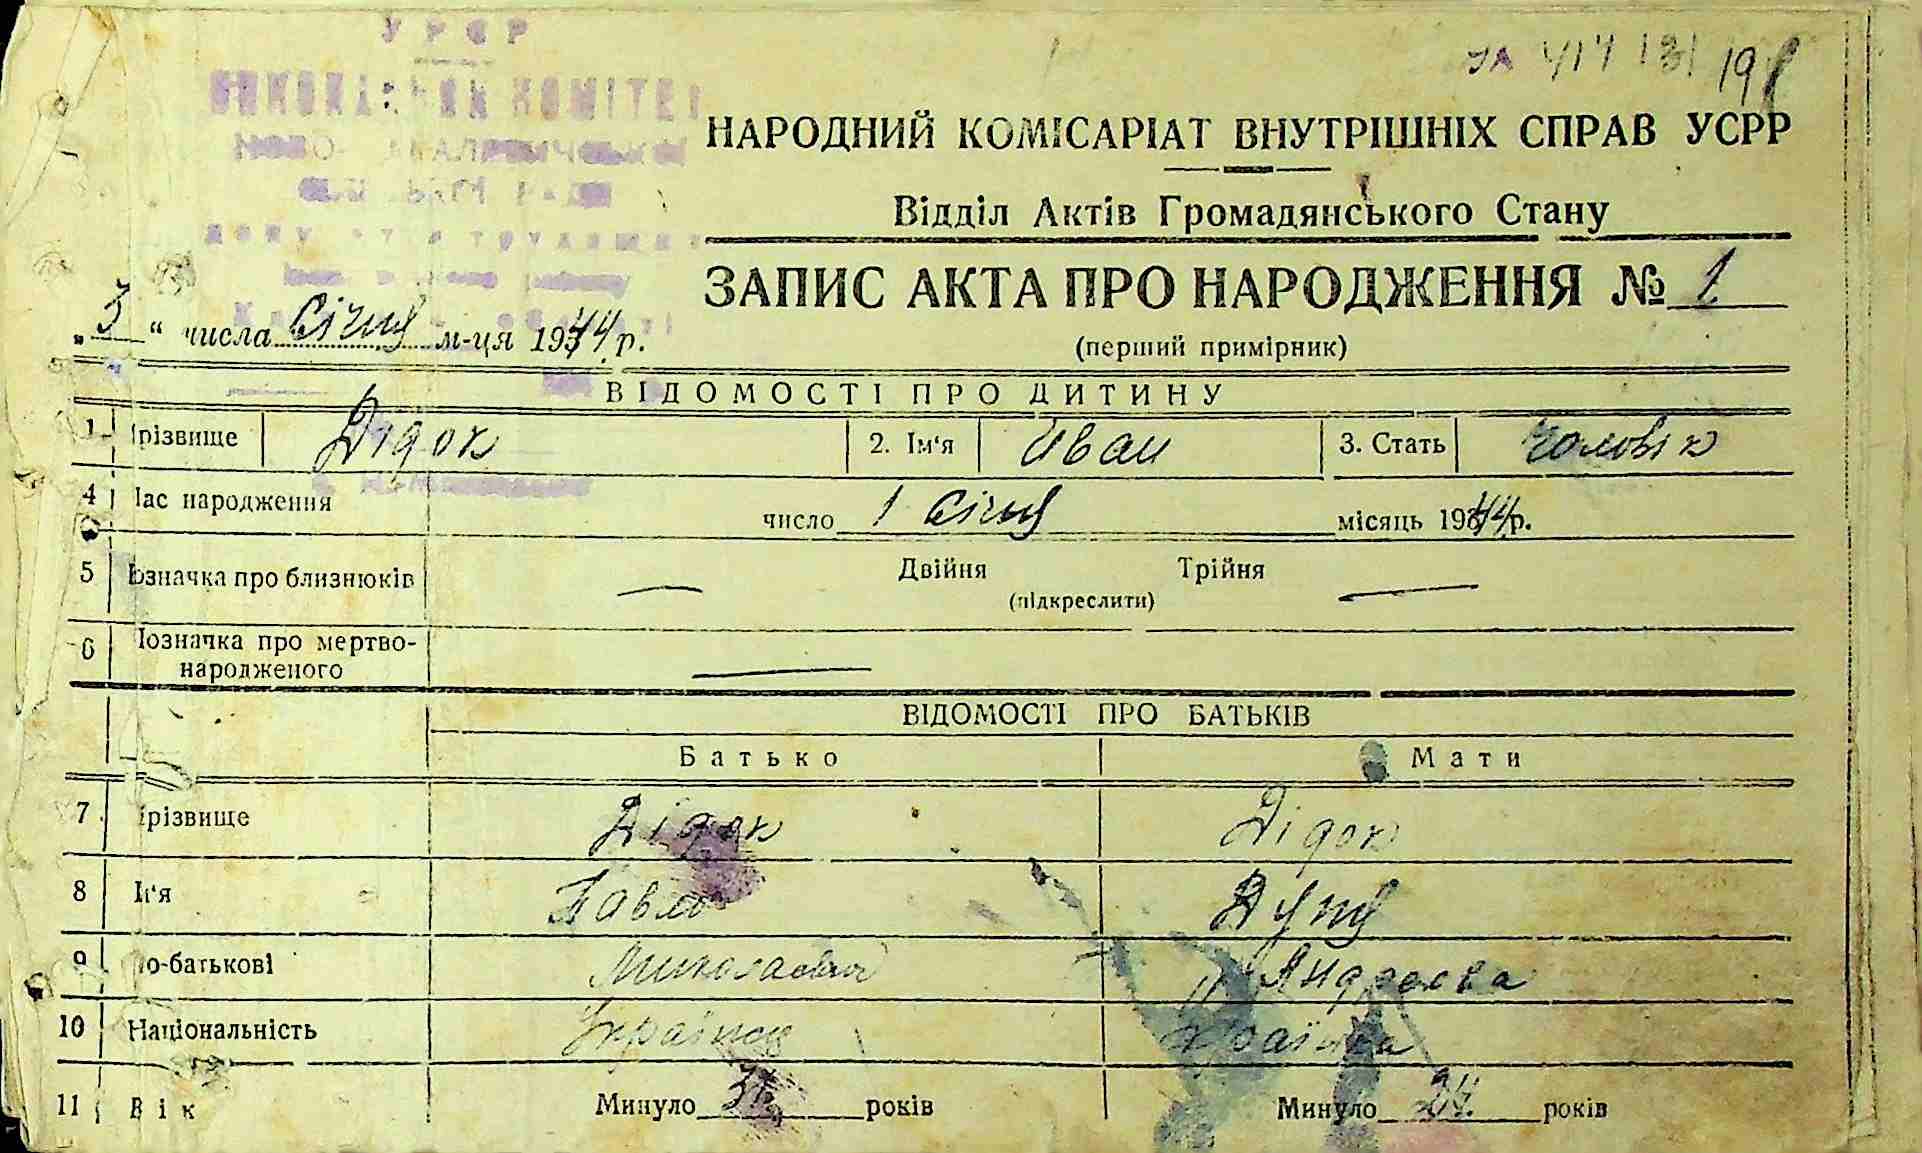 УРСР
КОМІТЕТ
НАРОДНИЙ КОМІСАРІАТ ВНУТРІШНІХ СПРАВ УСРР
Відділ Актів Громадянського Стану
ЗАПИС АКТА ПРО НАРОДЖЕННЯ № 1
„ 3 “ числа січня м-ця 1944 р.
(перший примірник)
ВІДОМОСТІ ПРО ДИТИНУ
1 різвище Дідок 2. Ім'я Иван 3. Стать Чоловік
4 Час народження
число 1 січня місяць 1944 р.
5 означка про близнюків — Двійня Трійня —
(підкреслити)
6 Позначка про мертво-
народженого —
ВІДОМОСТІ ПРО БАТЬКІВ
Батько Мати
7 різвище Дідок Дідок
8 Ім'я Павло Дуня
9 По-батькові Миколаєвич Андреєва
10 Національність Українец Українка
11 Вік Минуло років Минуло 24 років